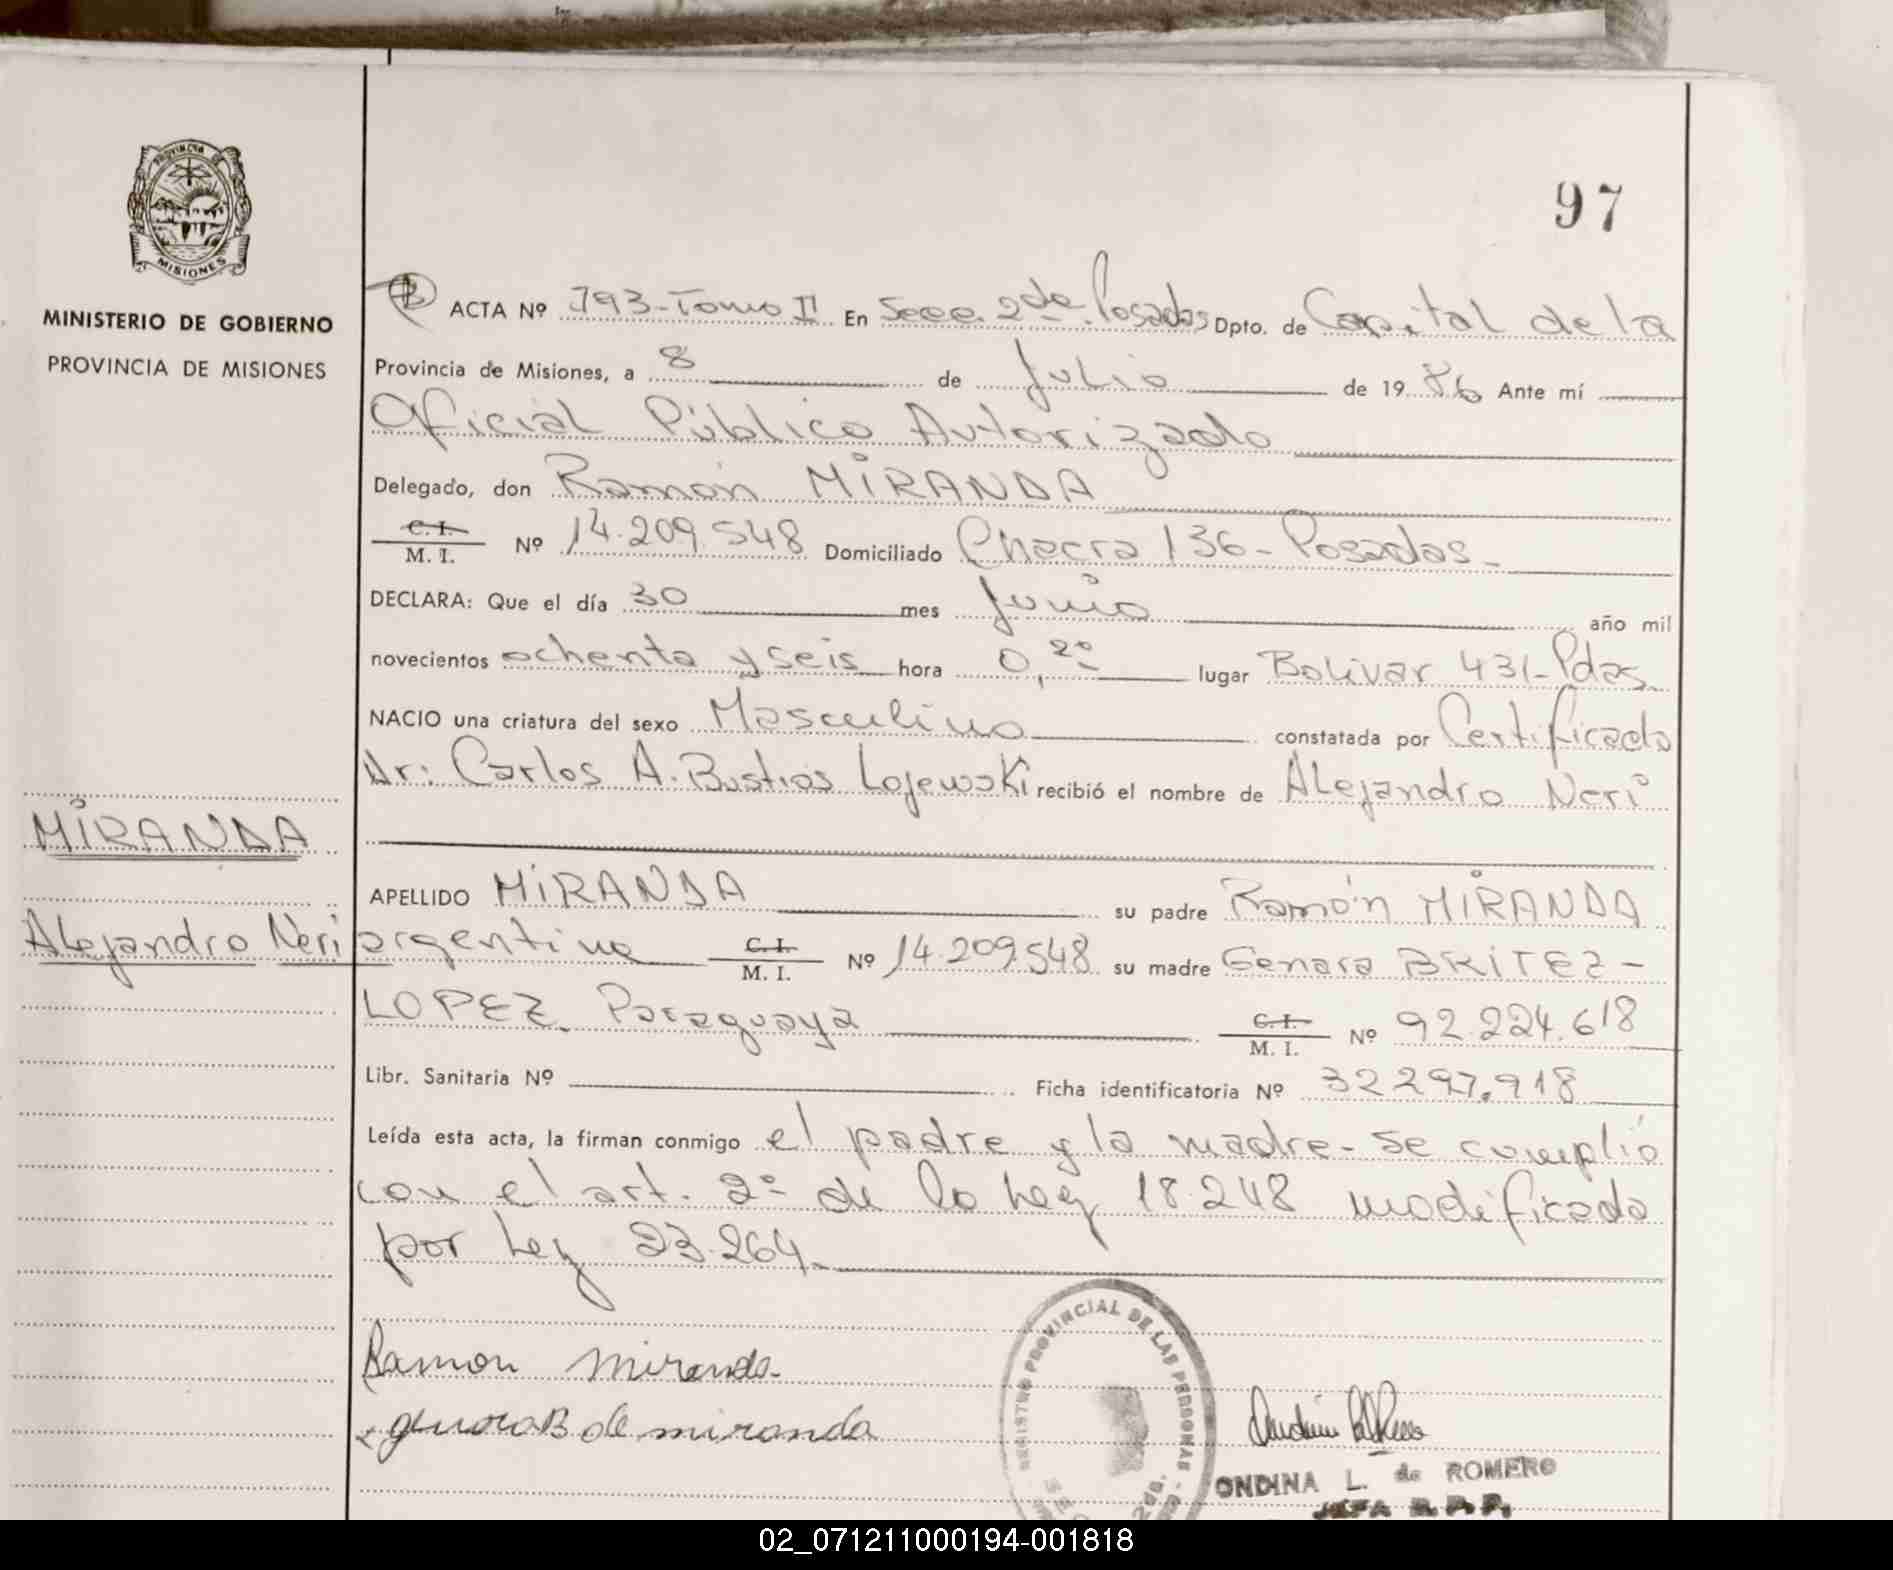 PROVINCIA DE
MISIONES
MINISTERIO DE GOBIERNO
PROVINCIA DE MISIONES
MIRANDA
Alejandro Neri
97
ACTA Nº 793-Tomo II En Secc. 2da Posadas Dpto. de Capital de la
Provincia de Misiones, a 8 de Julio de 1986 Ante mí
Oficial Público Autorizado
Delegado, don Ramón MIRANDA
C.I.
M. I. Nº 14.209.548 Domiciliado Chacra 136-Posadas-
DECLARA: Que el día 30 mes Junio año mil
novecientos ochenta y seis hora 0,20 lugar Bolivar 431-Pdas.
NACIO una criatura del sexo Masculino constatada por Certificado
Dr: Carlos A. Bustios Lojewski recibió el nombre de Alejandro Neri
APELLIDO MIRANDA su padre Ramón MIRANDA
argentino C.I. M. I. Nº 14.209.548 su madre Genara BRITEZ-
LOPEZ. Paraguaya C.I. M. I. Nº 92.224.618
Libr. Sanitaria Nº Ficha identificatoria Nº 32.297.918
Leída esta acta, la firman conmigo el padre y la madre- se cumplió
con el art. 2º de la Ley 18.248 modificado
por Ley 23.264.-
Ramon Miranda
genara B de miranda
REGISTRO PROVINCIAL DE LAS PERSONAS
ONDINA L. de ROMERO
JEFA R. P. P.
02_071211000194-001818